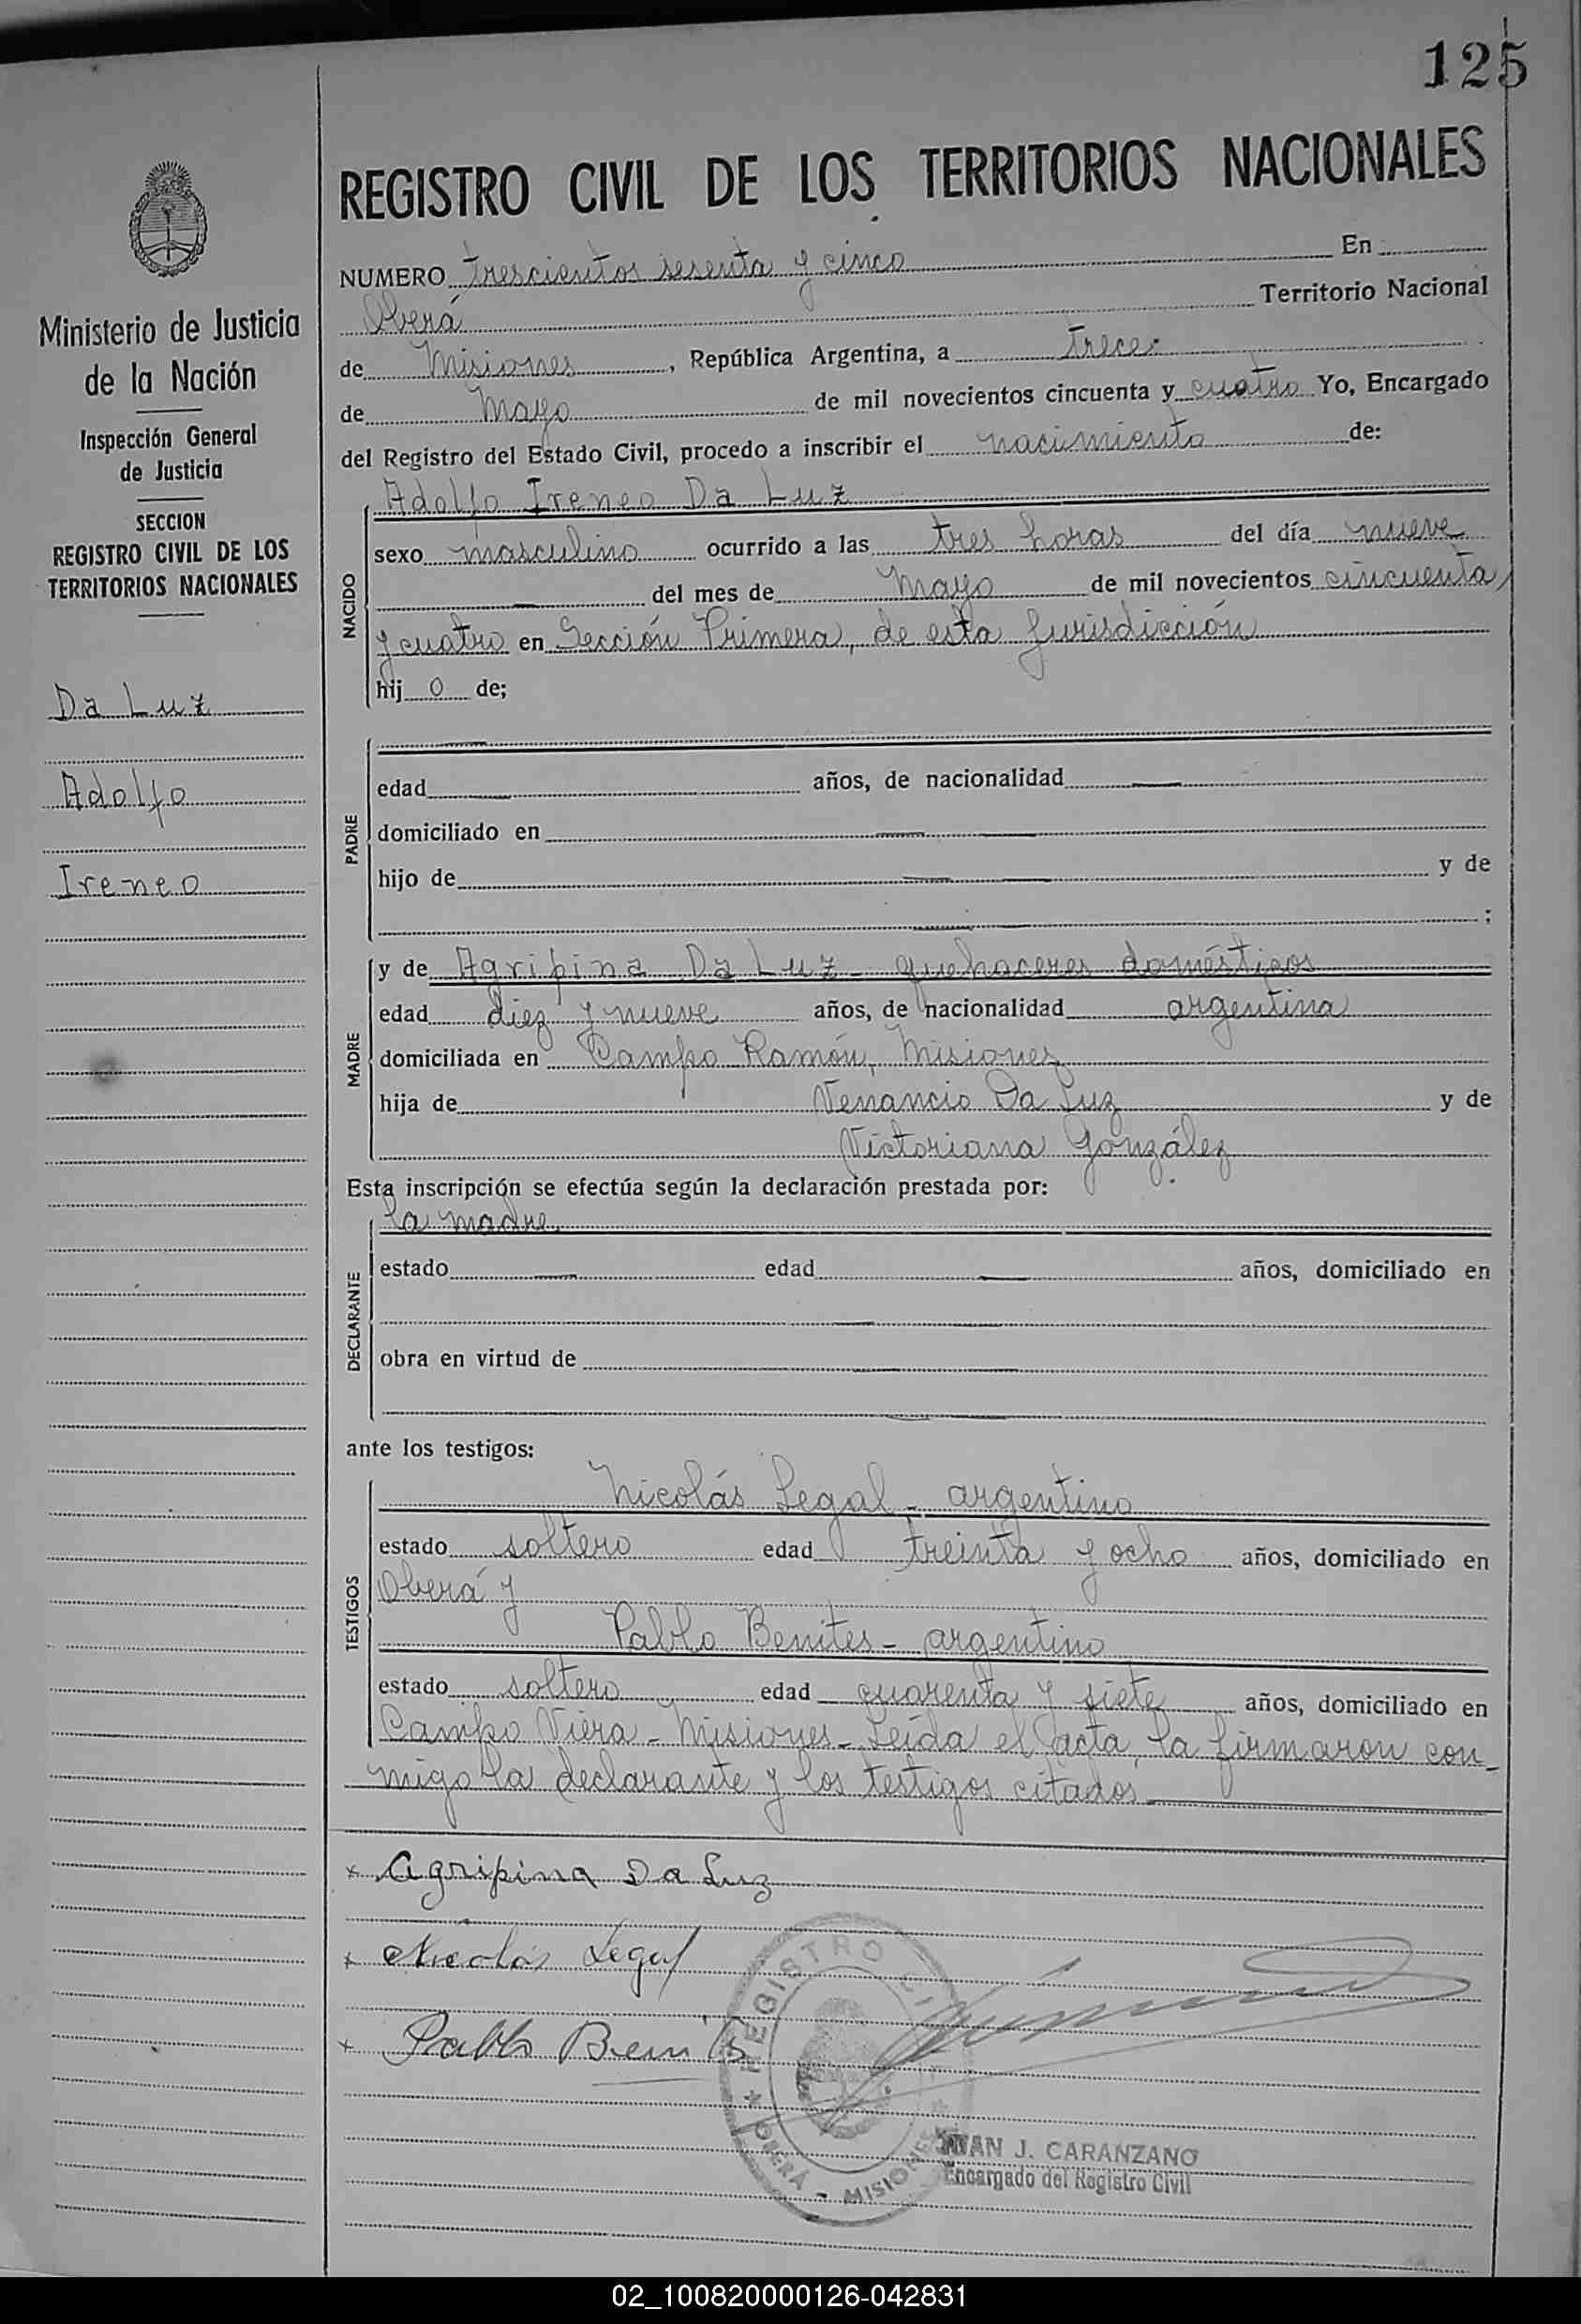 125
REGISTRO CIVIL DE LOS TERRITORIOS NACIONALES
NUMERO trescientos sesenta y cinco En
Oberá Territorio Nacional
de Misiones, República Argentina, a trece
de Mayo de mil novecientos cincuenta y cuatro Yo, Encargado
del Registro del Estado Civil, procedo a inscribir el nacimiento de:
Adolfo Ireneo Da Luz
NACIDO
sexo masculino ocurrido a las tres horas del día nueve
del mes de Mayo de mil novecientos cincuenta
y cuatro en Sección Primera, de esta Jurisdicción
hij o de;
PADRE
edad años, de nacionalidad
domiciliado en
hijo de y de
;
MADRE
y de Agripina Da Luz - quehaceres domésticos
edad diez y nueve años, de nacionalidad argentina
domiciliada en Campo Ramón, Misiones
hija de Venancio Da Luz y de
Victoriana González
Esta inscripción se efectúa según la declaración prestada por:
la madre
DECLARANTE
estado edad años, domiciliado en
obra en virtud de
ante los testigos:
TESTIGOS
Nicolás Legal - argentino
estado soltero edad treinta y ocho años, domiciliado en
Oberá y
Pablo Benites - argentino
estado soltero edad cuarenta y siete años, domiciliado en
Campo Viera - Misiones - Leída el acta, la firmaron con
migo la declarante y los testigos citados
x Agripina Da Luz
x Nicolás Legal
x Pablo Benites
REGISTRO CIVIL
OBERÁ - MISIONES
JUAN J. CARANZANO
Encargado del Registro Civil
Ministerio de Justicia
de la Nación
Inspección General
de Justicia
SECCION
REGISTRO CIVIL DE LOS
TERRITORIOS NACIONALES
Da Luz
Adolfo
Ireneo
02_100820000126-042831